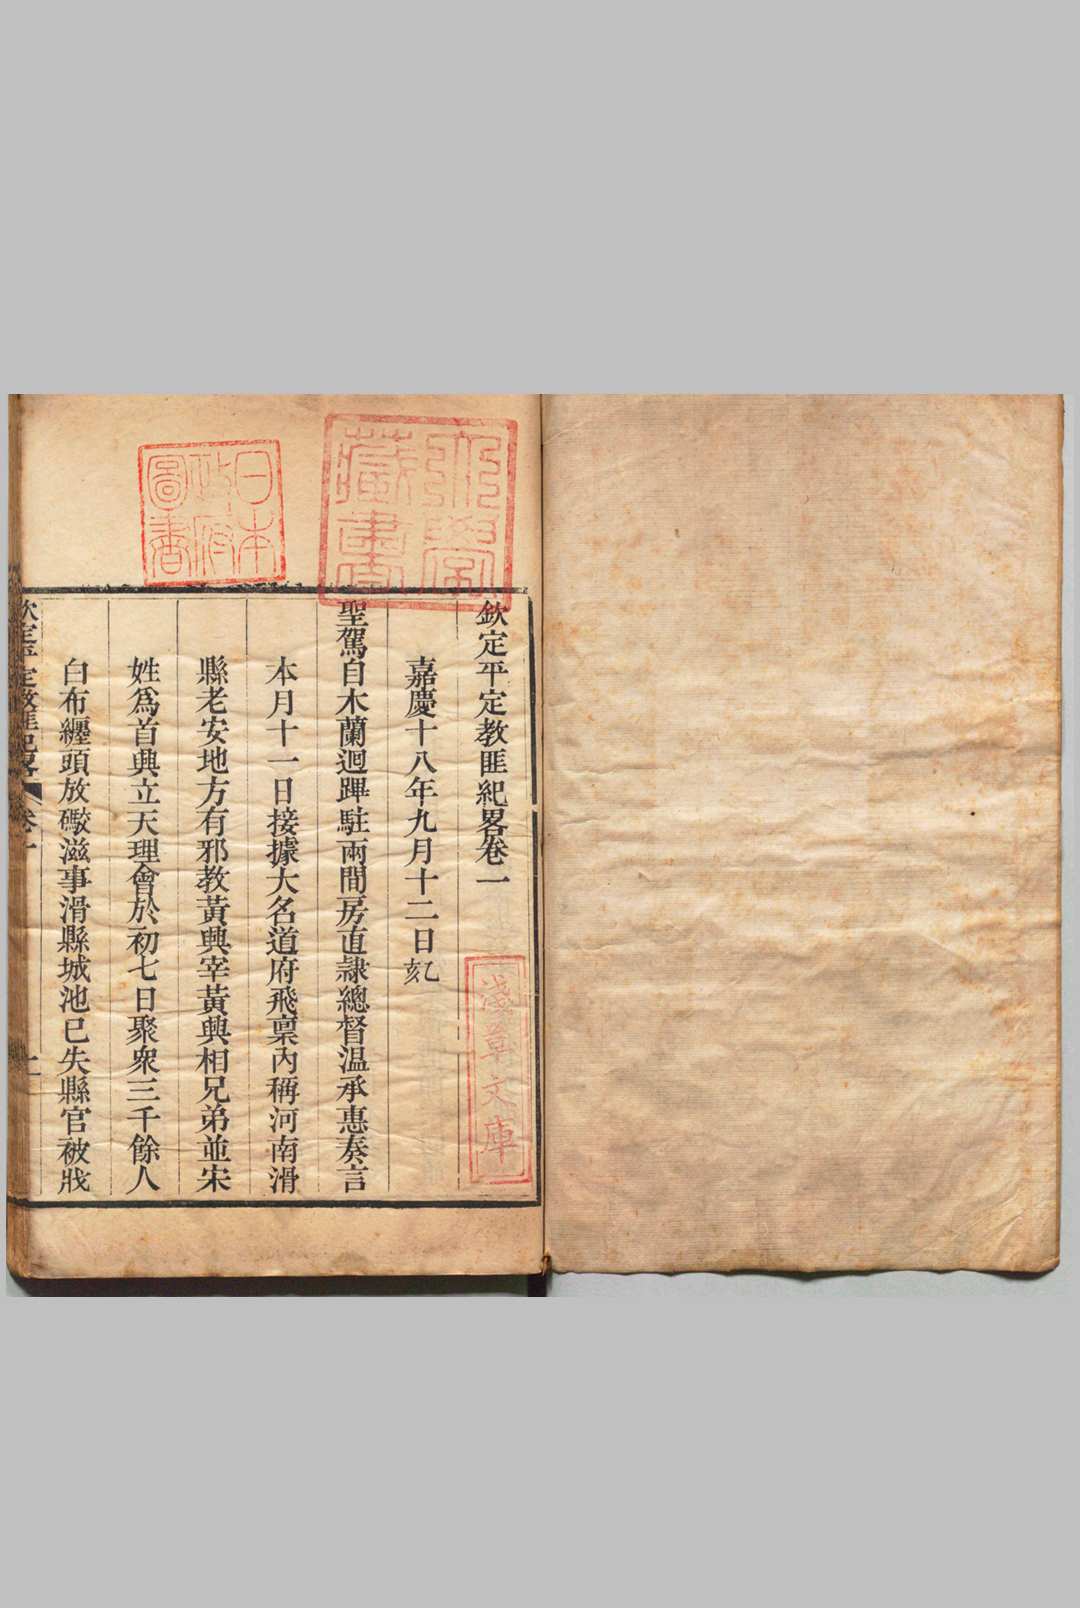 欽定平定教匪紀畧卷一
嘉慶十八年九月十二日乙亥
聖駕自木蘭迴蹕駐兩間房直隷總督温承惠奏言
本月十一日接據大名道府飛稟內稱河南滑
縣老安地方有邪教黃興宰黃興相兄弟並宋
姓爲首興立天理會於初七日聚衆三千餘人
白布纒頭放礮滋事滑縣城池已失縣官被戕
欽定平定教匪紀畧
卷一
日本
政府
圖書
藏書
淺草文庫